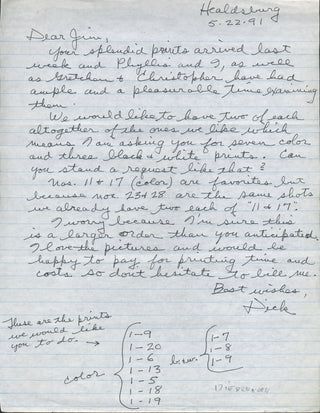 Healdsburg
5.22.91
Dear Jim,
Your splendid prints arrived last
week and Phyllis and I, as well
as Gretchen & Christopher have had
ample and a pleasurable time examining
them.
We would like to have two of each
altogether of the ones we like which
means I am asking you for seven color
and three black & white prints. Can
you stand a request like that?
Nos. 11 & 17 (color) are favorites but
because nos. 23 & 28 are the same shots
we already have two each of "11 & 17".
I worry because I'm sure this
is a larger order than you anticipated.
I love the pictures and would be
happy to pay for printing time and
costs so don't hesitate to bill me.
Best wishes,
Dick
These are the prints
we would like
you to do. →
color
1-9
1-20
1-6
1-13
1-5
1-18
1-19
b & w.
1-7
1-8
1-9